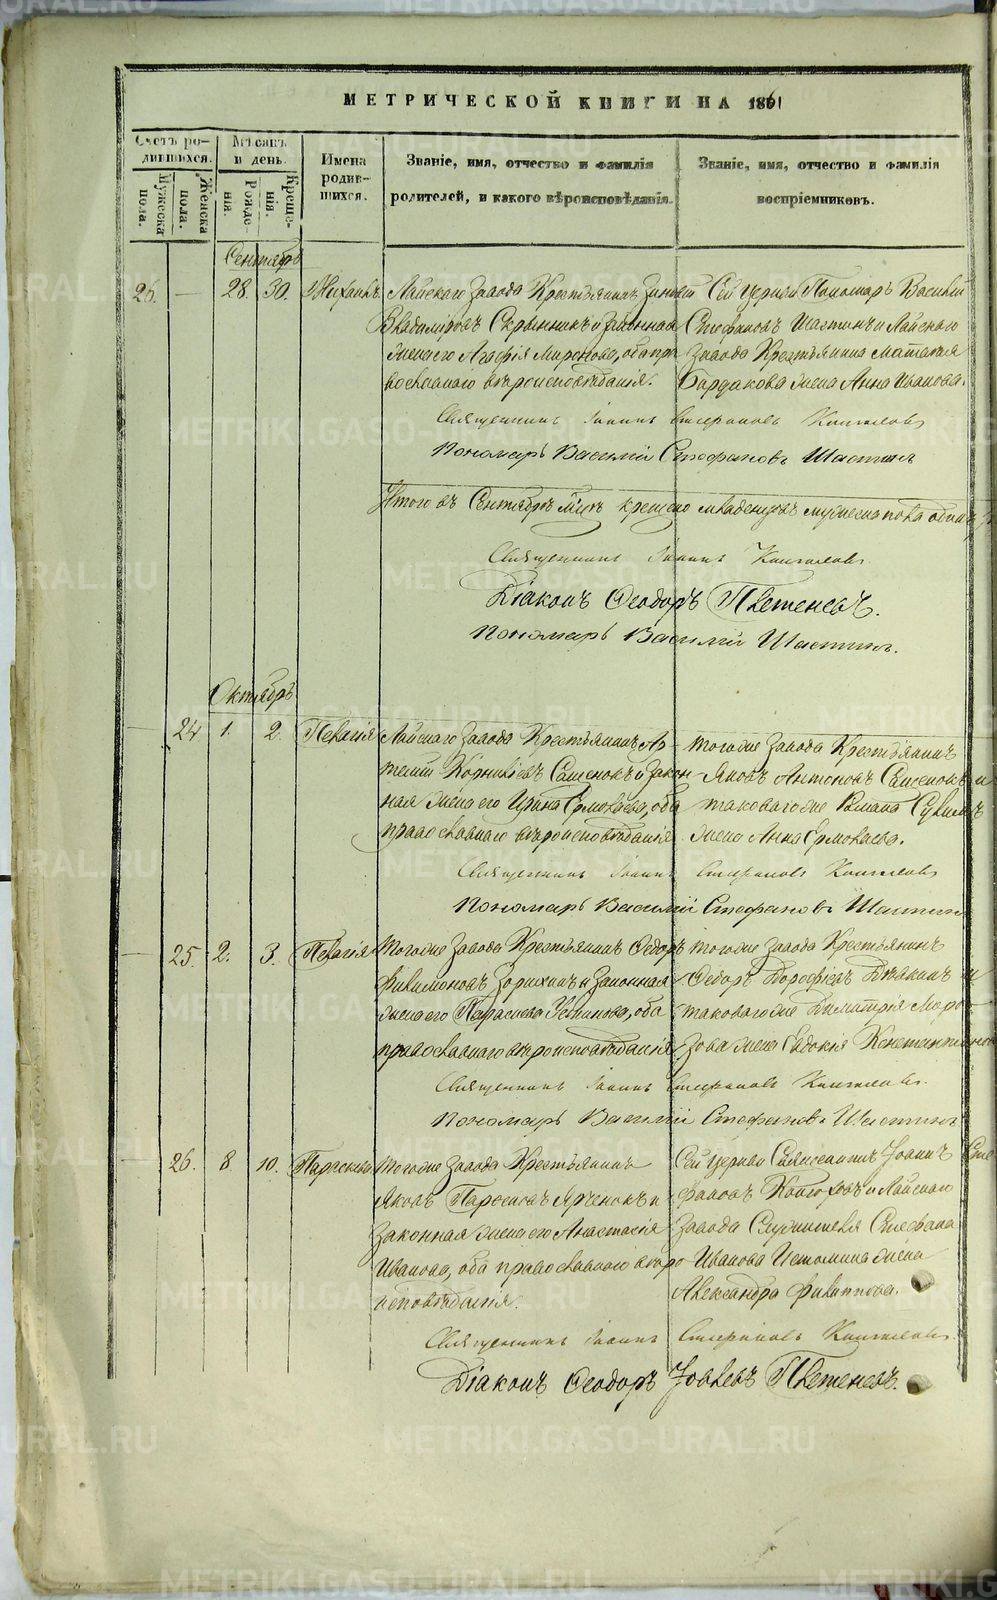 МЕТРИЧЕСКОЙ КНИГИ НА 1861
Счетъ ро-
дившихся.
Мужеска
пола.
Женска
пола.
Мѣсяцъ
и день.
Рожде-
нія.
Креще-
нія.
Имена
родив-
шихся.
Званіе, имя, отчество и фамилія
родителей, и какого вѣроисповѣданія.
Званіе, имя, отчество и фамилія
воспріемниковъ.
Сентябрь
26. — 28. 30. Михаилъ
Лайскаго завода Крестьянинъ Зиновій
Владиміровъ Скрынникъ и законная
жена его Агафія Миронова, оба пра
вославнаго вѣроисповѣданія.
Сей церкви Пономарь Василій
Стефановъ Шастинъ и Лайскаго
завода Крестьянина
Бардакова жена Анна Иванова.
Священникъ Іоаннъ Стефановъ
Пономарь Василій Стефановъ Шастинъ
Итого въ Сентябрѣ м-цѣ крещено младенцевъ мужеска пола одинъ
Священникъ Іоаннъ
Діаконъ Ѳеодоръ
Пономарь Василій Шастинъ.
Октябрь
24 1. 2. Пелагія
Лайскаго завода Крестьянинъ Ар-
темій Корниліевъ и Закон
ная жена его Ирина Ермолаева, оба
православнаго вѣроисповѣданія
тогоже завода Крестьянинъ
Яковъ Антоновъ и
таковагоже Романа
жена Анна Ермолаева.
Священникъ Іоаннъ Стефановъ
Пономарь Василій Стефановъ Шастинъ
25. 2. 3. Пелагія
тогоже завода Крестьянинъ Ѳедоръ
Филимоновъ и законная
жена его Параскева Устинова, оба
православнаго вѣроисповѣданія
тогоже завода Крестьянинъ
Ѳедоръ Дороѳѣевъ и
таковагоже Димитрія Моро
зова жена Евдокія Константинова
Священникъ Іоаннъ Стефановъ
Пономарь Василій Стефановъ Шастинъ
26. 8. 10.
тогоже завода Крестьянинъ
Яковъ и
законная жена его Анастасія
Иванова, оба православнаго вѣро
исповѣданія.
Сей церкви Священникъ Іоаннъ Сте
фановъ и Лайскаго
завода Стефана
Иванова Истомина жена
Александра Филиппова.
Священникъ Іоаннъ Стефановъ
Діаконъ Ѳеодоръ Іовлевъ
METRIKI.GASO-URAL.RU